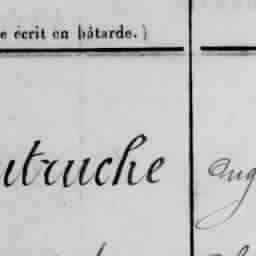 e écrit en bâtarde.)
utruche Aug